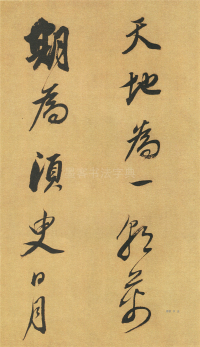 天地為一朝萬
期為須臾日月